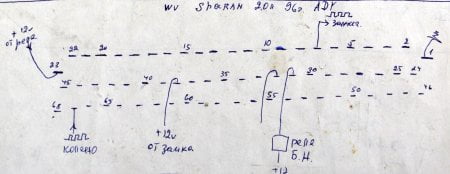 WV Sharan 2.0л 96г. ADY
+ 12v
от реле
зажиг.
22 20 15 10 5 2
23 1
45 40 35 30 25 24
68 65 60 55 50 46
колено
+12v
от замка
реле
Б.Н.
+12